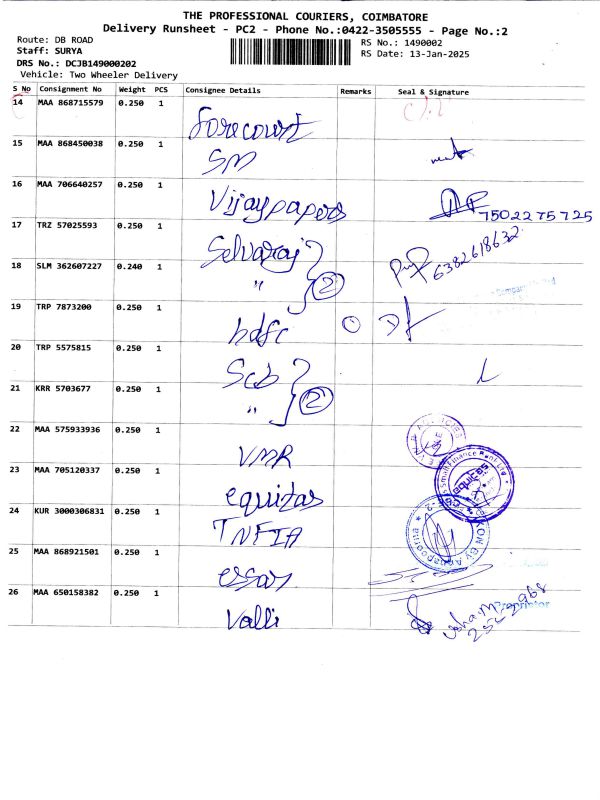 THE PROFESSIONAL COURIERS, COIMBATORE
Delivery Runsheet - PC2 - Phone No.:0422-3505555 - Page No.:2
Route: DB ROAD
Staff: SURYA
DRS No.: DCJB149000202
Vehicle: Two Wheeler Delivery
RS No.: 1490002
RS Date: 13-Jan-2025
S No Consignment No Weight PCS Consignee Details Remarks Seal & Signature
14 MAA 868715579 0.250 1 Forecourt
15 MAA 868450038 0.250 1 SM
16 MAA 706640257 0.250 1 Vijaypapers 7502275725
17 TRZ 57025593 0.250 1 Selvaraj 6382618632
18 SLM 362607227 0.240 1 " 2
19 TRP 7873200 0.250 1 hdfc
20 TRP 5575815 0.250 1 Scb
21 KRR 5703677 0.250 1 " 2
22 MAA 575933936 0.250 1 VMR
23 MAA 705120337 0.250 1 equitas
24 KUR 3000306831 0.250 1 TNFIA
25 MAA 868921501 0.250 1 essar
26 MAA 650158382 0.250 1 Valli